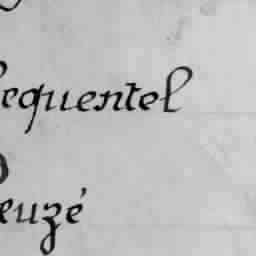 equentel
euzé